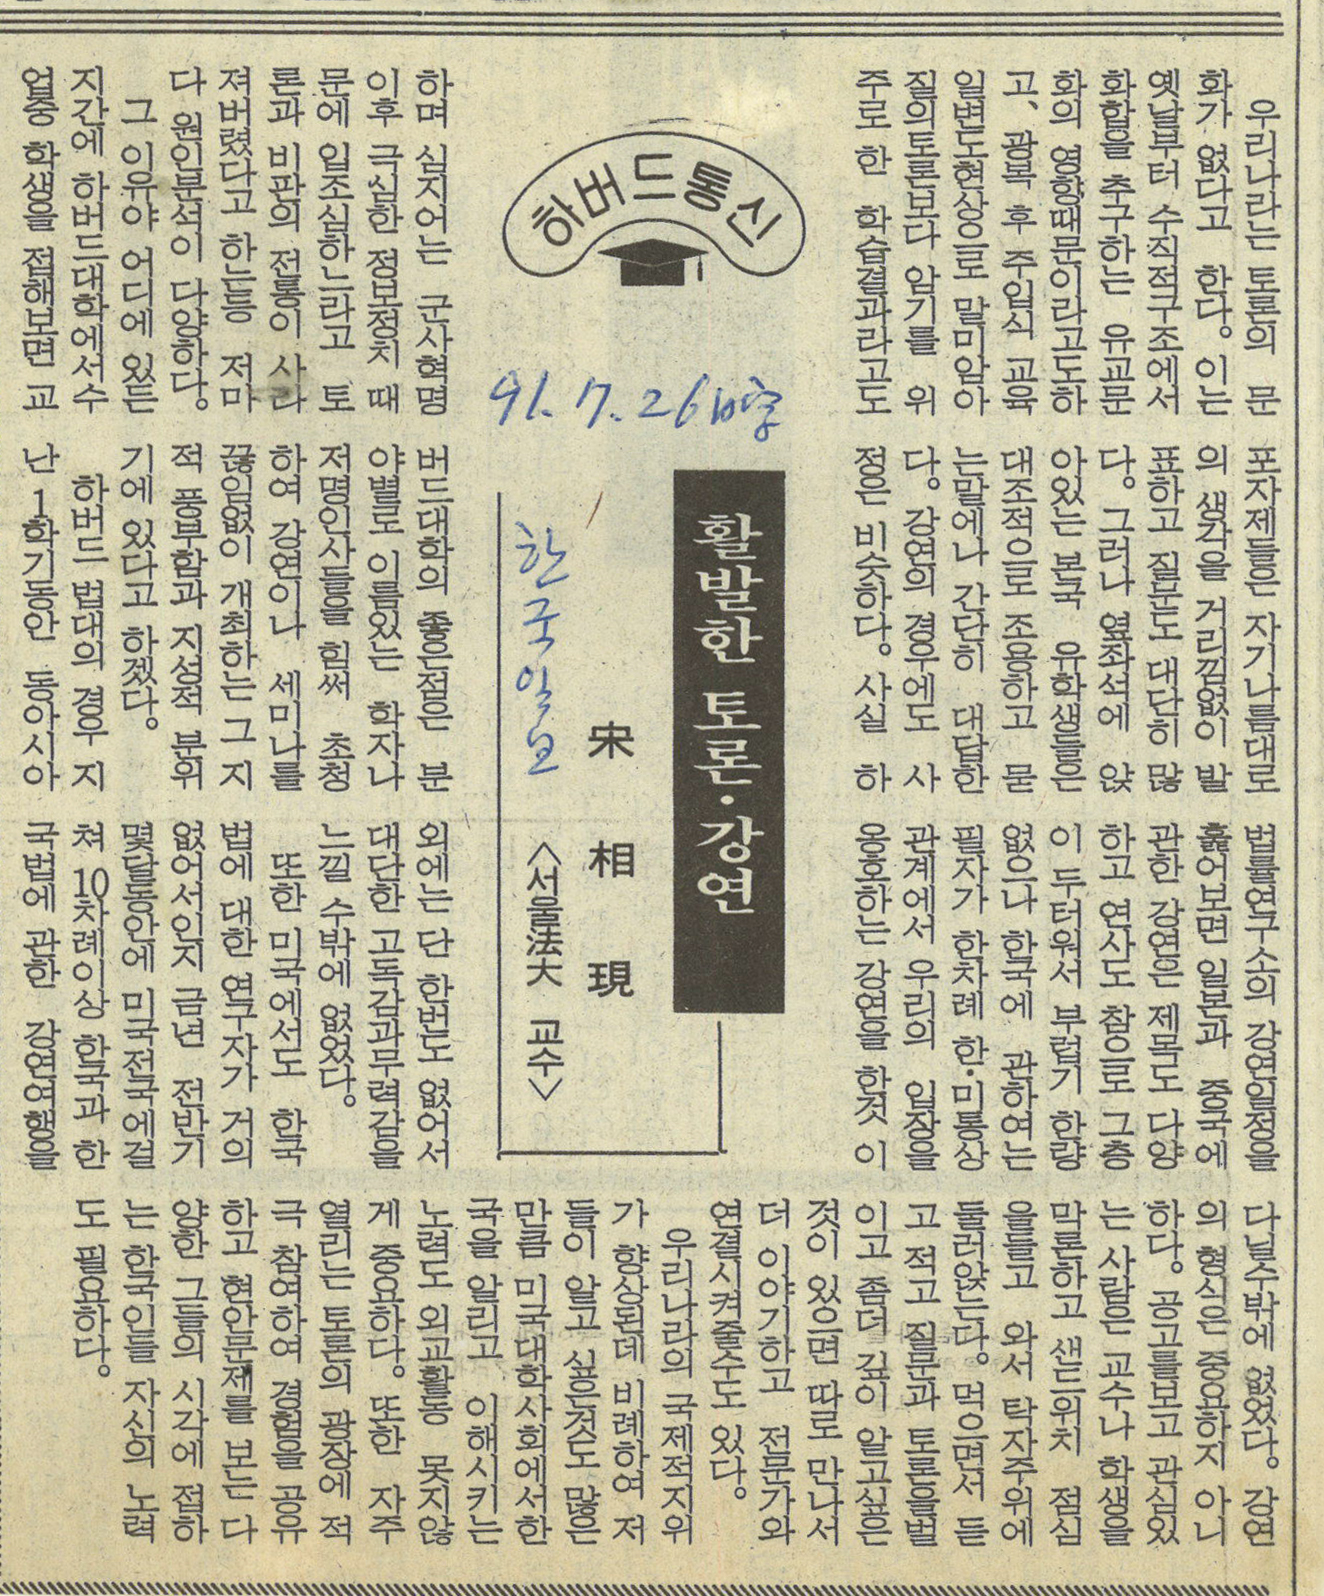 하버드통신
91. 7. 26
한국일보
활발한 토론·강연
宋相現
<서울法大 교수>
우리나라는 토론의 문
화가 없다고 한다. 이는
옛날부터 수직적구조에서
화합을 추구하는 유교문
화의 영향때문이라고도하
고, 광복 후 주입식 교육
일변도현상으로 말미암아
질의토론보다 암기를 위
주로 한 학습결과라고도
하며 심지어는 군사혁명
이후 극심한 정보정치 때
문에 입조심하느라고 토
론과 비판의 전통이 사라
져버렸다고 하는등 저마
다 원인분석이 다양하다.
그 이유야 어디에 있든
지간에 하버드대학에서수
업중 학생을 접해보면 교
포자제들은 자기나름대로
의 생각을 거리낌없이 발
표하고 질문도 대단히 많
다. 그러나 옆좌석에 앉
아있는 본국 유학생들은
대조적으로 조용하고 묻
는말에나 간단히 대답한
다. 강연의 경우에도 사
정은 비슷하다. 사실 하
버드대학의 좋은점은 분
야별로 이름있는 학자나
저명인사들을 힘써 초청
하여 강연이나 세미나를
끊임없이 개최하는 그 지
적 풍부함과 지성적 분위
기에 있다고 하겠다.
하버드 법대의 경우 지
난 1학기동안 동아시아
법률연구소의 강연일정을
훑어보면 일본과 중국에
관한 강연은 제목도 다양
하고 연사도 참으로 그층
이 두터워서 부럽기 한량
없으나 한국에 관하여는
필자가 한차례 한·미통상
관계에서 우리의 입장을
옹호하는 강연을 한것 이
외에는 단 한번도 없어서
대단한 고독감과무력감을
느낄 수밖에 없었다.
또한 미국에서도 한국
법에 대한 연구자가 거의
없어서인지 금년 전반기
몇달동안에 미국전국에걸
쳐 10차례이상 한국과 한
국법에 관한 강연여행을
다닐수밖에 없었다. 강연
의 형식은 중요하지 아니
하다. 공고를보고 관심있
는 사람은 교수나 학생을
막론하고 샌드위치 점심
을들고 와서 탁자주위에
둘러앉는다. 먹으면서 듣
고 적고 질문과 토론을벌
이고 좀더 깊이 알고싶은
것이 있으면 따로 만나서
더 이야기하고 전문가와
연결시켜줄수도 있다.
우리나라의 국제적지위
가 향상된데 비례하여 저
들이 알고 싶은것도 많은
만큼 미국대학사회에서한
국을 알리고 이해시키는
노력도 외교활동 못지않
게 중요하다. 또한 자주
열리는 토론의 광장에 적
극 참여하여 경험을 공유
하고 현안문제를 보는 다
양한 그들의 시각에 접하
는 한국인들 자신의 노력
도 필요하다.